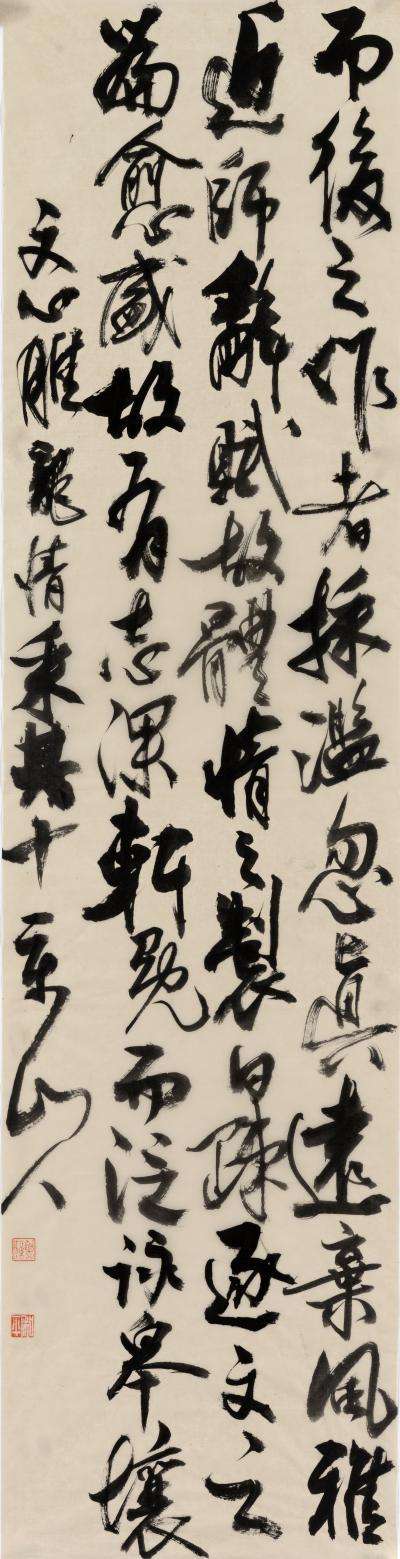 而後之作者採濫忽真遠棄風雅
近師辭賦故體情之製日疎逐文之
篇愈盛故有志深軒冕而泛詠皋壤
文心雕龍情采其十
山人